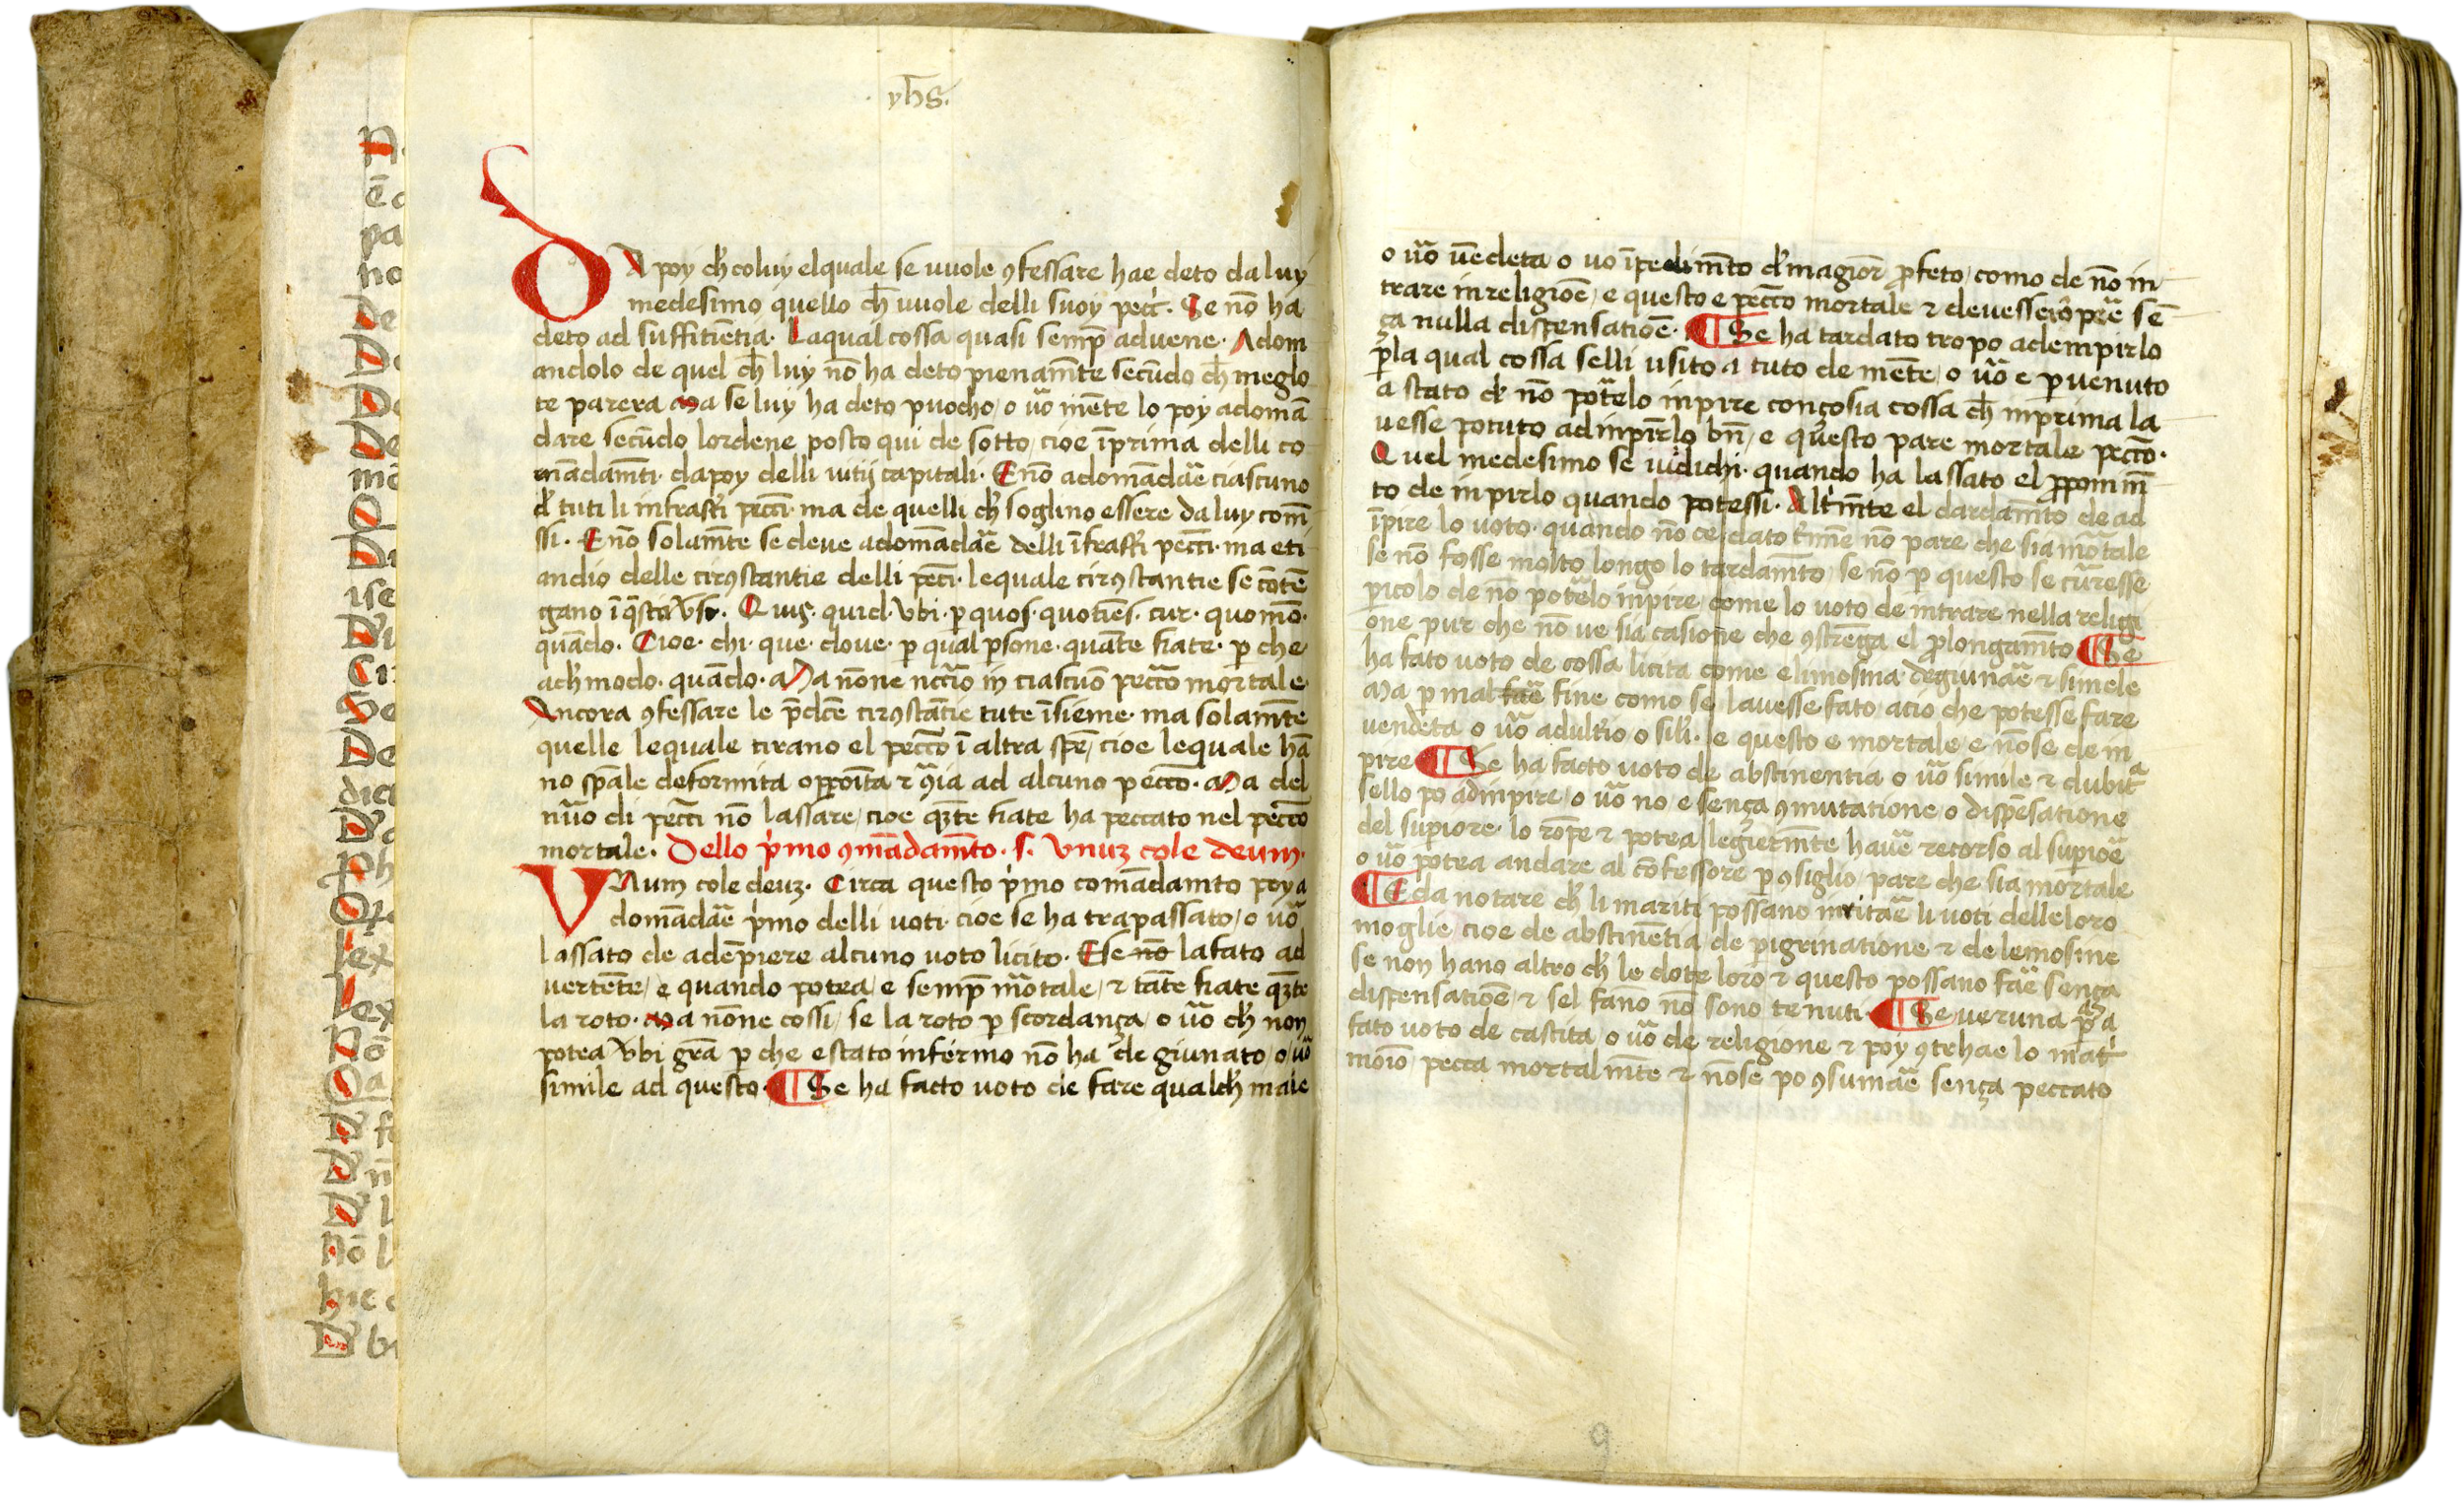 yħs.
DA poy cħ coluy elquale se uuole ꝯfessare hae deto da luy
medesimo quello cħ uuole delli suoy pecc̄. Se nō ha
deto ad suffitiētia. Laqual cossa quasi semp̄ aduene. Adom
andolo de quel cħ luy nō ha deto pienam̄te secūdo cħ meglo
te parera Ma se luy ha deto puocho, o ūo mēte lo poy adomā
dare secūdo lordene posto qui de sotto, cioe īprima delli co
mādam̄ti. dapoy delli uitij capitali. E nō adomādāe ciascuno
đ tuti li infrascti pecc̄i. ma de quelli cħ soglino essere da luy com̄
ssi. E nō solam̄te se deue adomādāe delli īfrascti pecc̄i. ma eti
andio delle cirꝯstantie delli pecc̄i. lequale cirꝯstantie se cōtē
gano ī q̄sti
Quis. quid. vbi. ꝑ quos. quotiēs. cur. quomō.
quādo. Cioe. chi. que. doue. ꝑ qual ꝑsone. quāte fiate. ꝑ che
a cħ modo. quādo. Ma nōne nc̄c̄ario in ciascuō pecc̄o mortale.
Ancora ꝯfessare le p̄dc̄e cirꝯstātie tute īsieme. ma solam̄te
quelle lequale tirano el pecc̄o ī altra sp̄e, cioe lequale hā
no sp̄ale deformita
ad alcuno pecco. Ma del
nūo di pecc̄i nō lassare, cioe qꝫte fiate ha peccato nel pecc̄o
mortale. Dello p̄mo ꝯmādam̄to. s. Vnuꝫ cole deum.
VNum cole deuꝫ. Circa questo p̄mo comādamto poy a
domādāe p̄mo delli uoti. cioe se ha trapassato, o ūo
lassato de adēpiere alcuno uoto licito. E se nō la fato ad
uertēte, e quando potea, e semp̄ mōrtale, ⁊ tāte fiate qꝫte
la roto. Ma nōne cossi, se la roto ꝑ scordança, o ūo cħ non
potea vbi gr̄a ꝑ che e stato infermo nō ha de giunato, o ūo
simile ad questo. ¶ Se ha facto uoto de fare qualcħ male
o ūo uēdeta o uo īpedim̄to đ magior ꝓfeto, como de nō in
trare in religiōe, e questo e pecc̄o mortale ⁊
sē
ça nulla dispensatiōe. ¶ Se ha tardato tropo adempirlo
ꝑla qual cossa selli usito a tuto de mēte, o ūo e ꝑuenuto
a stato đ nō potelo inpire conçosia cossa cħ inprima la
uesse potuto adinpirlo bn̄, e questo pare mortale pecc̄o.
Quel medesimo se iudichi. quando ha lassato el ꝓponim̄
to de inpirlo quando potessi. Altm̄te el dardam̄to de ad
īpire lo uoto. quando nō ce dato t̄mīe nō pare che sia mōrtale
se nō fosse molto longo lo tardam̄to, se nō ꝑ questo se curesse
ꝑicolo de nō potelo inpire, come lo uoto de intrare nella religi
one pur che nō ue sia casione che ꝯstrēga el ꝓlongam̄to ¶ Se
ha fato uoto de cossa licita come elimosina degiunāe ⁊ simele
Ma ꝑ mal fine como se lauesse fato, acio che potesse fare
vendeta o ūo adultio o sili. e questo e mortale, e nōse de in
pire ¶ Se ha facto uoto de abstinentia o ūo simile ⁊ dubita
sello po adinpire, o ūo no e sença ꝯmutatione, o dispēsatione
del supiore. lo rōpe ⁊ potea legierm̄te hauē recorso al supiore
o ūo potea andare al cōfessore ꝑ ꝯsiglio, pare che sia mortale
¶ E da notare cħ li mariti possano irritāe li uoti delle loro
moglie, cioe de abstinētia, de ꝑigrinatione ⁊ de lemosine
se non hano altro cħ le dote loro ⁊ questo possano fāe sença
dispensatiōe, ⁊ sel fano no sono tenuti. ¶ Se ueruna ꝑsona
fato uoto de castita, o ūo de religione ⁊ poy ꝯtrhae lo mat̄
moīo, pecca mortalm̄te ⁊ nōse po ꝯsumāe sença peccato
9